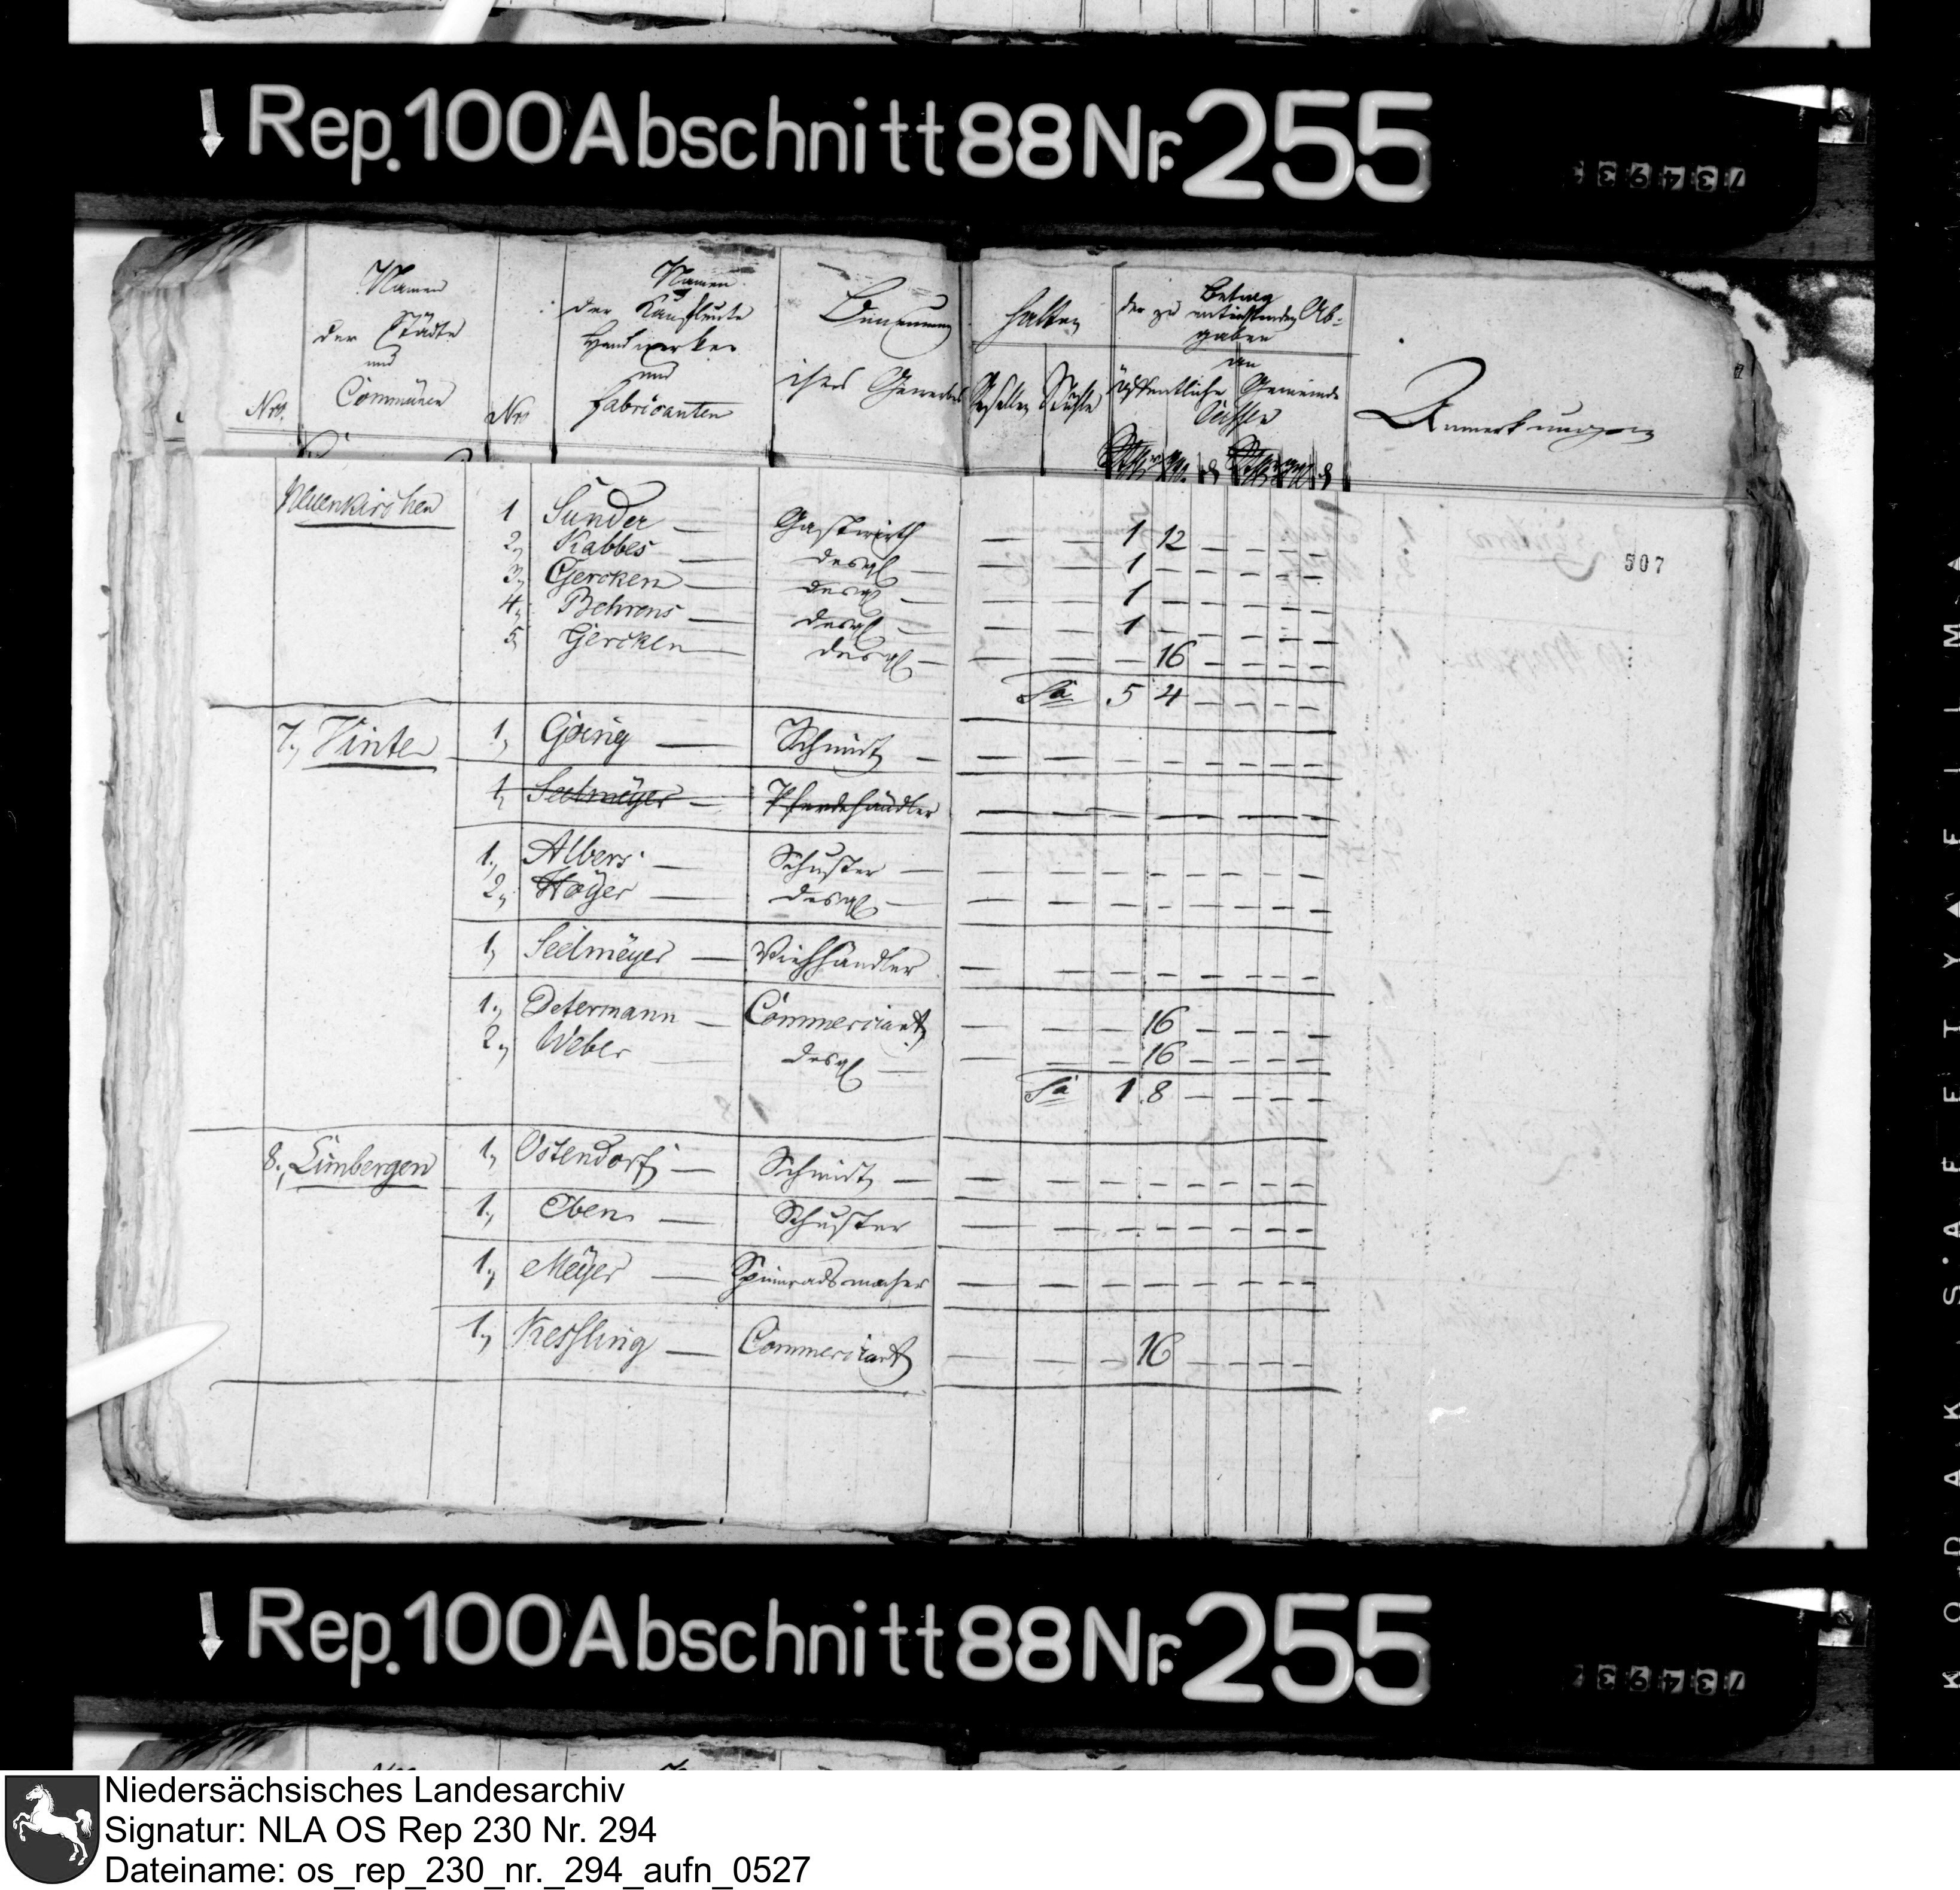 Rep. 100 Abschnitt 88 Nr. 255
Nro. Namen der Städte und Commünen Nro Namen der Kaufleute Handwerker und Fabricanten Benennung ihres Gewerbes halten Gesellen Stühle Betrag der zu entrichtenden Abgaben an öffentliche Gemeinde Cassen Anmerkungen
507
Neuenkirchen 1 Sunder — Gastwirth — — 1 12 — — — —
2, Kabbes — desgl — — — 1 — — — — —
3, Gercken — desgl — — — 1 — — — — —
4, Behrens — desgl — — — 1 — — — — —
5 Gercken — desgl — — — — 16 — — — —
Sa 5 4 — — — —
7., Vinte 1, Göing — Schmidt — — — — — — — — —
1, Seelmeÿer — Pferdehändler — — — — — — — —
1., Albers — Schuster — — — — — — — — —
2, Hoÿer — desgl — — — — — — — — —
1, Seelmeÿer — Viehhändler — — — — — — — —
1., Determann — Commerciant — — — 16 — — — —
2., Weber — desgl — — — — 16 — — — —
Sa 1 8 — — — —
8., Limbergen 1, Ostendorf — Schmidt — — — — — — — — —
1., Eben — Schuster — — — — — — — —
1., Meÿer — Spinnradsmacher — — — — — — — —
1., Kessling — Commerciant — — — 16 — — — —
Rep. 100 Abschnitt 88 Nr. 255
Niedersächsisches Landesarchiv
Signatur: NLA OS Rep 230 Nr. 294
Dateiname: os_rep_230_nr._294_aufn_0527